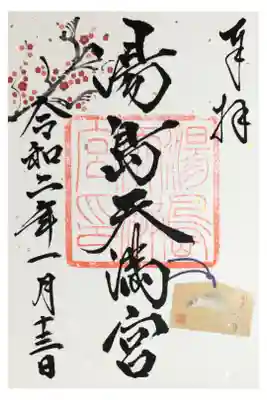 奉拝
湯島天満宮
令和二年一月十三日